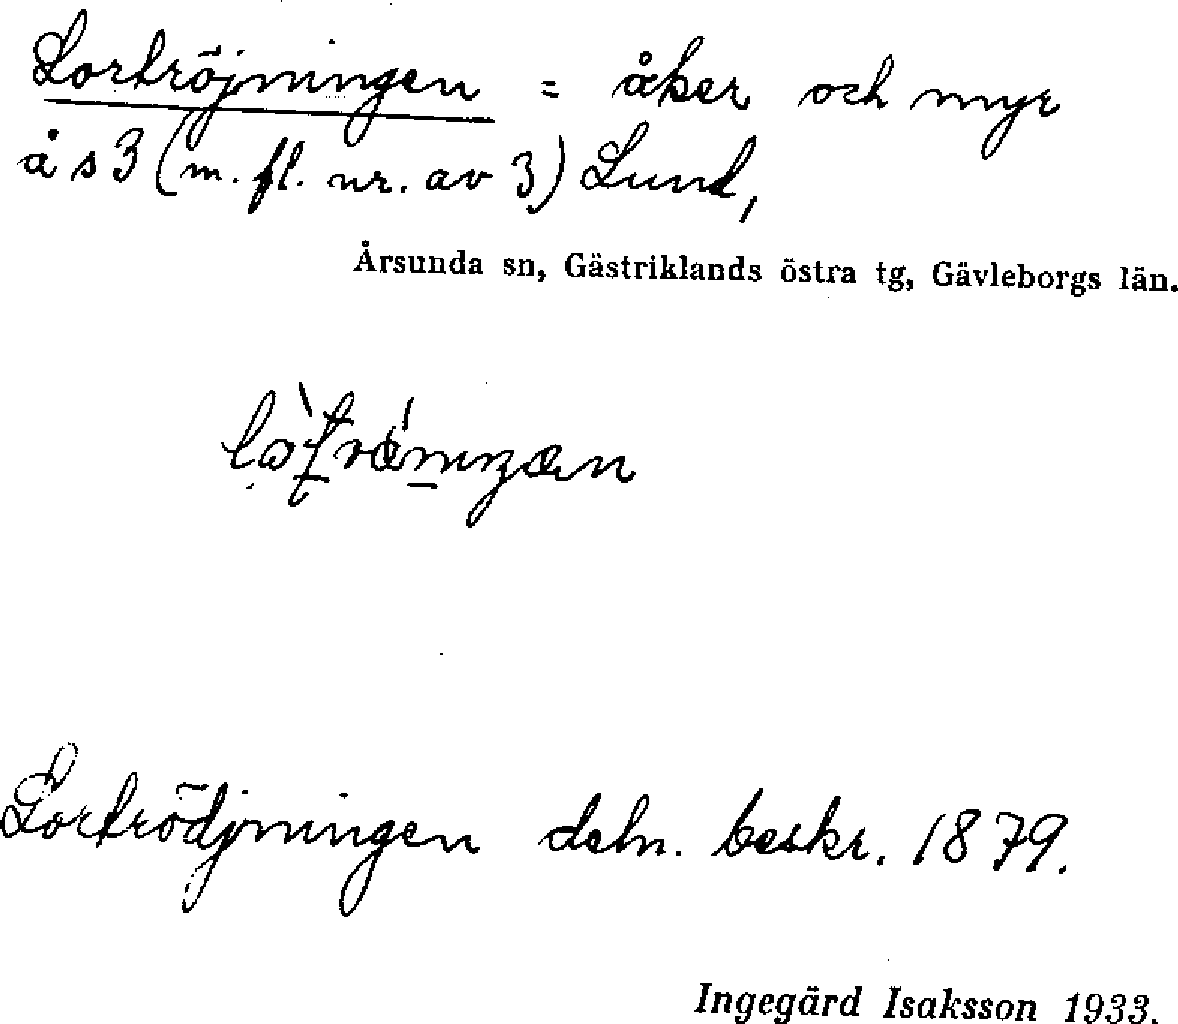 Lortröjningen = åker och myr
å s 3 (m. fl. nr. av 3) Lund,
Årsunda sn, Gästriklands östra tg, Gävleborgs län.
Lortrödjningen deln. beskr. 1879.
Ingegärd Isaksson 1933.